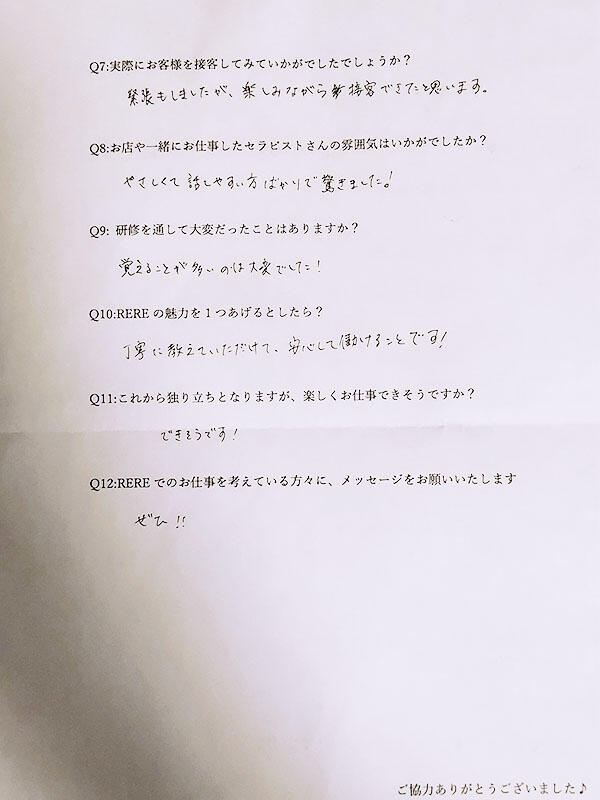 Q7:実際にお客様を接客してみていかがでしたでしょうか？
緊張もしましたが、楽しみながら接客できたと思います。
Q8:お店や一緒にお仕事したセラピストさんの雰囲気はいかがでしたか？
やさしくて話しやすい方ばかりで驚きました!
Q9: 研修を通して大変だったことはありますか？
覚えることが多いのは大変でした!
Q10:REREの魅力を1つあげるとしたら？
丁寧に教えていただけて、安心して働けることです!
Q11:これから独り立ちとなりますが、楽しくお仕事できそうですか？
できそうです!
Q12:REREでのお仕事を考えている方々に、メッセージをお願いいたします
ぜひ!!
ご協力ありがとうございました♪